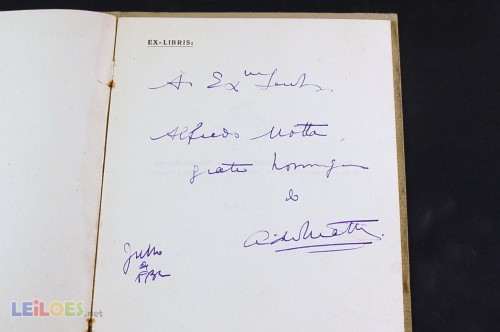 EX-LIBRIS:
Ao Exmo Senhor
Alfredo Motta,
grata homenagem
de
Julho
de
LEiLOES.net